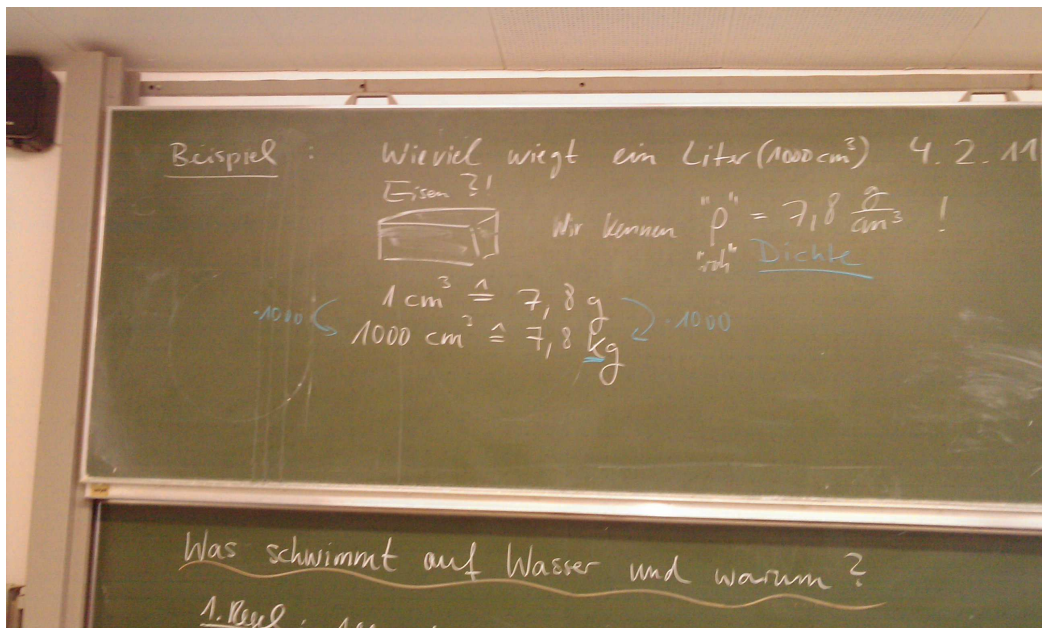 Beispiel : Wieviel wiegt ein Liter (1000 cm³) 4.2.11
Eisen ?!
Wir kennen "ρ" = 7,8 g/cm³ !
"roh" Dichte
1 cm³ ≙ 7,8 g
·1000 ·1000
1000 cm³ ≙ 7,8 kg
Was schwimmt auf Wasser und warum ?
1. Regel :